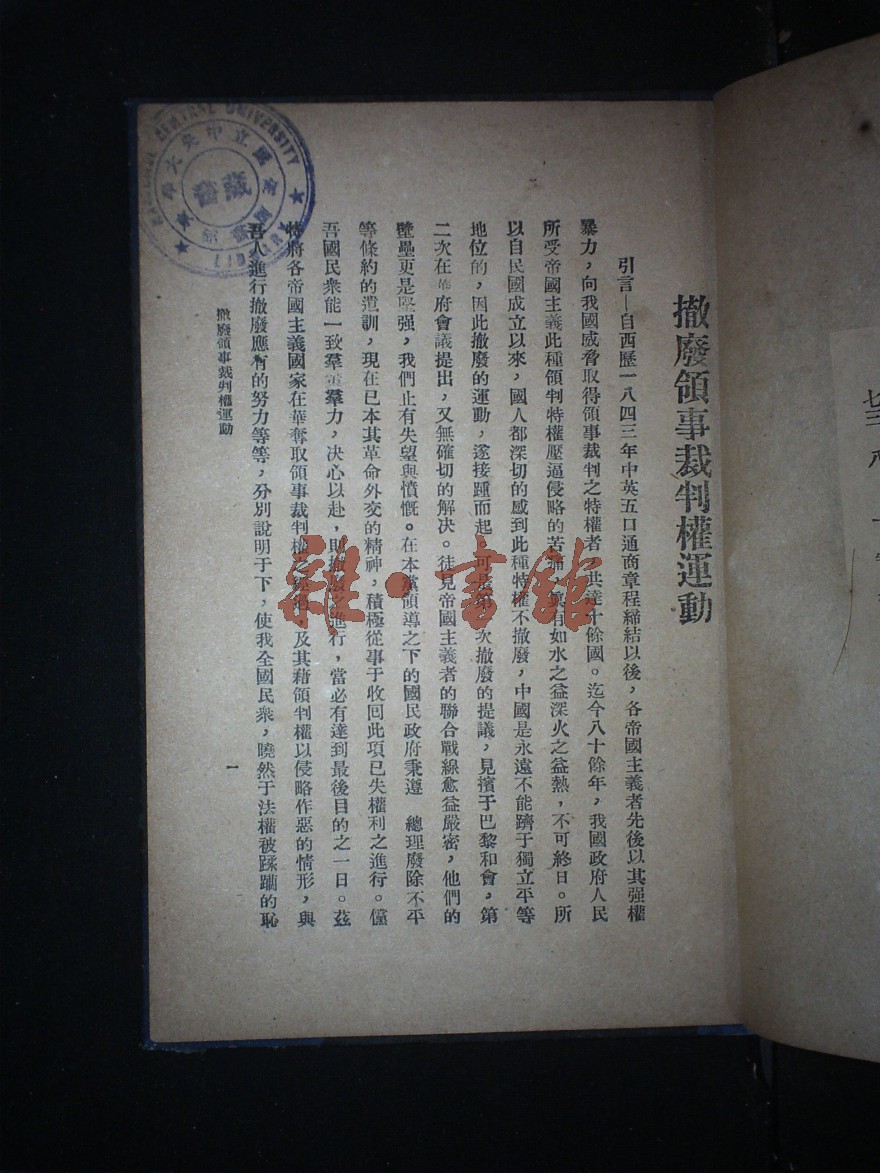 撤廢領事裁判權運動
引言—自西歷一八四三年中英五口通商章程締結以後，各帝國主義者先後以其强權
暴力，向我國威脅取得領事裁判之特權者，共達十餘國。迄今八十餘年，我國政府人民
所受帝國主義此種領判特權壓逼侵略的苦痛，眞有如水之益深火之益熱，不可終日。所
以自民國成立以來，國人都深切的感到此種特權不撤廢，中國是永遠不能躋于獨立平等
地位的，因此撤廢的運動，遂接踵而起。可是第一次撤廢的提議，見擯于巴黎和會，第
二次在華府會議提出，又無確切的解决。徒見帝國主義者的聯合戰線愈益嚴密，他們的
壁壘更是堅强，我們止有失望與憤慨。在本黨領導之下的國民政府秉遵　總理廢除不平
等條約的遺訓，現在已本其革命外交的精神，積極從事于收回此項已失權利之進行。儻
吾國民衆能一致羣策羣力，决心以赴，則撤廢之進行，當必有達到最後目的之一日。茲
特將各帝國主義國家在華奪取領事裁判權之經過，及其藉領判權以侵略作惡的情形，與
吾人進行撤廢應有的努力等等，分別說明于下，使我全國民衆，曉然于法權被蹂躪的恥
撤廢領事裁判權運動
一
CENTRAL UNIVERSITY
國立中央大學
藏書
雜·書館